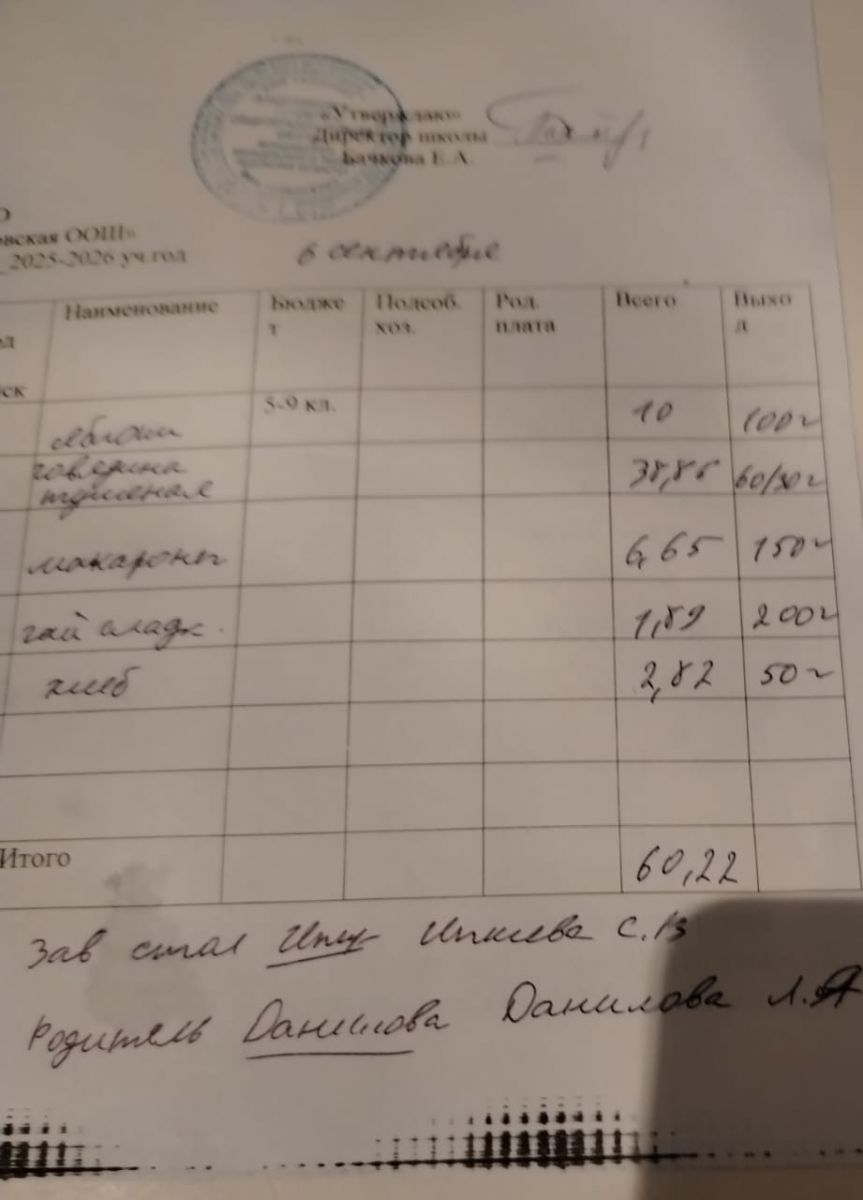 «Утверждаю»
Директор школы
Бачкова Е.А.
О
овская ООШ»
_ 2025-2026 уч.год 6 сентября
од
ск
Наименование Бюджет Подсоб. хоз. Род. плата Всего Выход
5-9 кл.
яблоки 10 100г
говядина тушеная 38,86 60/50г
макароны 6,65 150г
чай сладк. 1,89 200г
хлеб 2,82 50г
Итого 60,22
Зав стол С.В
Родитель Данилова Данилова Л.А